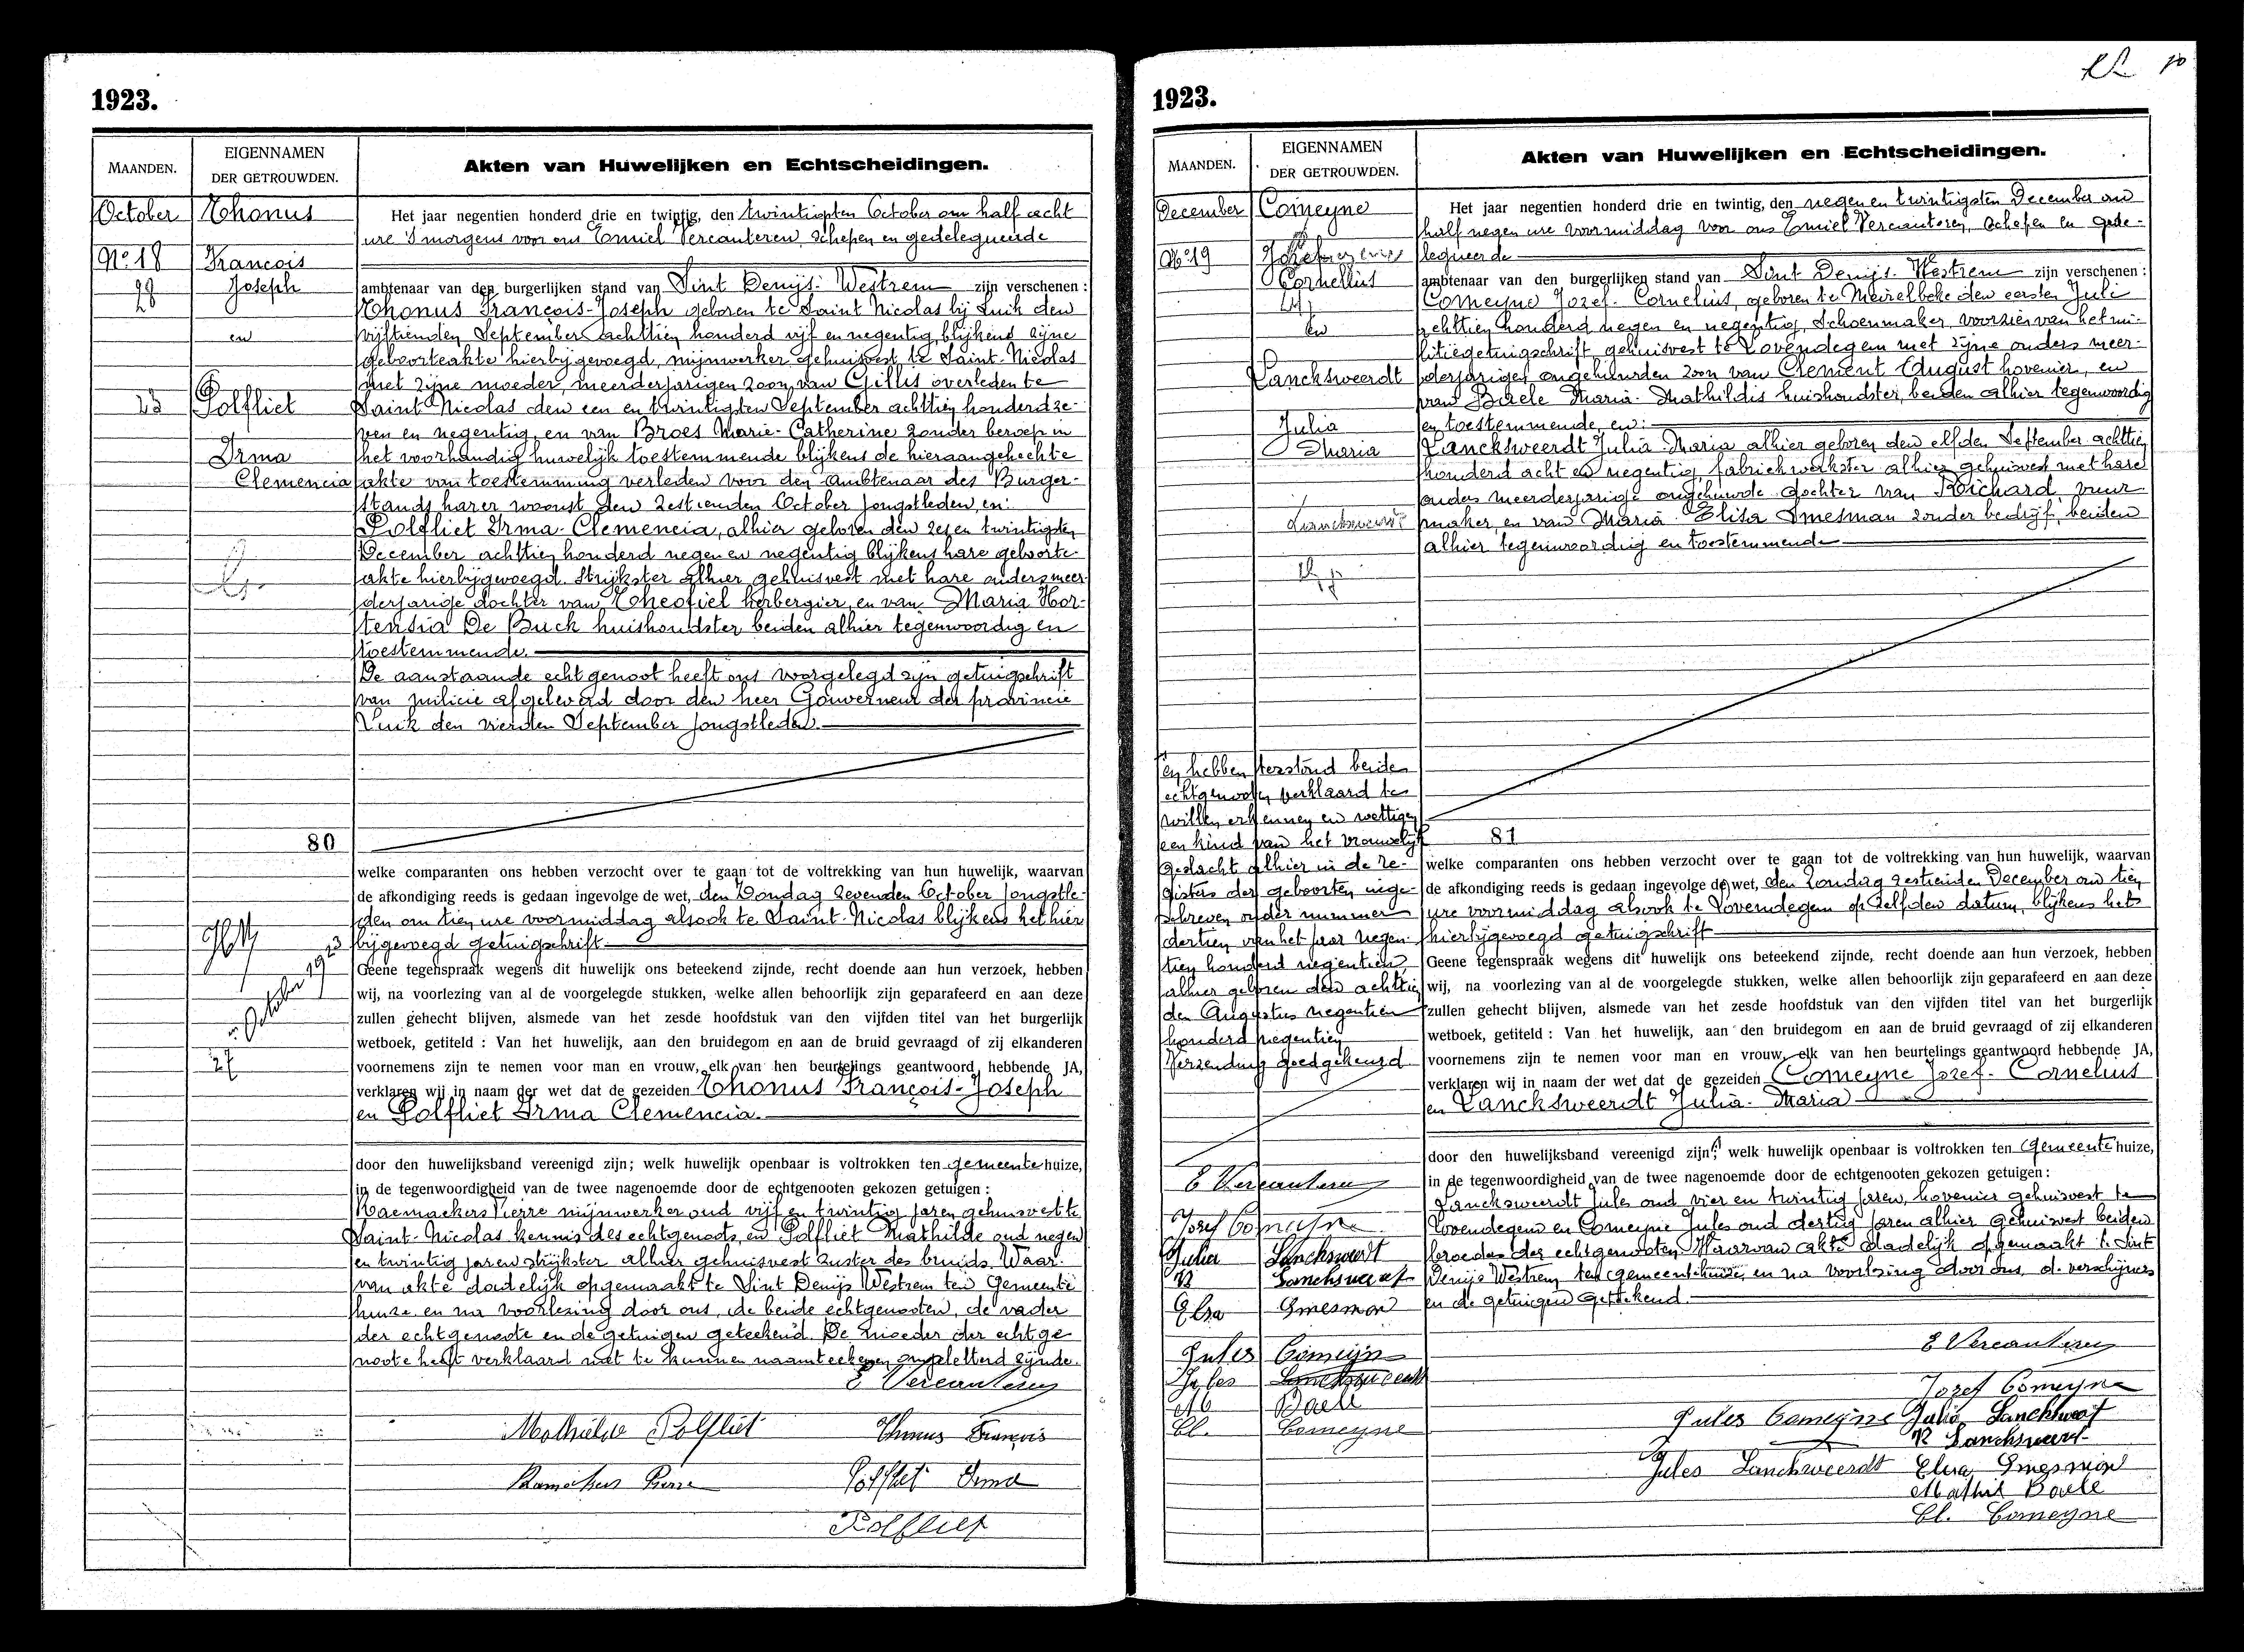 1923.
MAANDEN.
EIGENNAMEN
DER GETROUWDEN.
Akten van Huwelijken en Echtscheidingen.
October
No 18
28
Thonus
Francois
Joseph
en
Polfliet
Irma
Clemencia
Het jaar negentien honderd drie en twintig, den twintigsten October om half acht
ure 's morgens voor ons Emiel Vercauteren, Schepen en gedelegueerde
ambtenaar van den burgerlijken stand van Sint Denijs-Westrem zijn verschenen :
Thonus François-Joseph geboren te Saint Nicolas bij Luik den
vijftienden September achttien honderd vijf en negentig, blijkens zijne
geboorteakte hierbijgevoegd, mijnwerker gehuisvest te Saint-Nicolas
met zijne moeder, meerderjarigen zoon van Gillis overleden te
Saint Nicolas den een en twintigsten September achttien honderd ze-
ven en negentig, en van Broes Marie-Catherine zonder beroep in
het voorhandig huwelijk toestemmende blijkens de hieraangehechte
akte van toestemming verleden voor den Ambtenaar des Burger-
stands harer woonst den zestienden October jongstleden, en:
Polfliet Irma-Clemencia, alhier geboren den zes en twintigsten
December achttien honderd negen en negentig blijkens hare geboorte-
akte hierbijgevoegd. Strijkster alhier gehuisvest met hare ouders meer-
derjarige dochter van Theofiel herbergier, en van Maria Hor-
tensia De Buck huishoudster beiden alhier tegenwoordig en
toestemmende.
De aanstaande echtgenoot heeft ons voorgelegd zijn getuigschrift
van milicie afgeleverd door den heer Gouverneur der provincie
Luik den vierden September jongstleden.
80
welke comparanten ons hebben verzocht over te gaan tot de voltrekking van hun huwelijk, waarvan
de afkondiging reeds is gedaan ingevolge de wet, den Zondag zevenden October jongstle-
den om tien ure voormiddag alsook te Saint-Nicolas blijkens het hier
bijgevoegd getuigschrift
Geene tegenspraak wegens dit huwelijk ons beteekend zijnde, recht doende aan hun verzoek, hebben
wij, na voorlezing van al de voorgelegde stukken, welke allen behoorlijk zijn geparafeerd en aan deze
zullen gehecht blijven, alsmede van het zesde hoofdstuk van den vijfden titel van het burgerlijk
wetboek, getiteld : Van het huwelijk, aan den bruidegom en aan de bruid gevraagd of zij elkanderen
voornemens zijn te nemen voor man en vrouw, elk van hen beurtelings geantwoord hebbende JA,
verklaren wij in naam der wet dat de gezeiden Thonus François-Joseph
en Polfliet Irma Clemencia.
door den huwelijksband vereenigd zijn; welk huwelijk openbaar is voltrokken ten gemeente huize,
in de tegenwoordigheid van de twee nagenoemde door de echtgenooten gekozen getuigen :
Raemaekers Pierre mijnwerker oud vijf en twintig jaren gehuisvest te
Saint-Nicolas kennis des echtgenoots, en Polfliet Mathilde oud negen
en twintig jaren strijkster alhier gehuisvest zuster der bruid. Waar-
van akte dadelijk opgemaakt te Sint Denijs Westrem ten Gemeente
huize en na voorlezing door ons, de beide echtgenooten, de vader
der echtgenoote en de getuigen geteekend. De moeder der echtge
noote heeft verklaard niet te kunnen naamteekenen ongeletterd zijnde.
E Vercauteren
Mathilde Polfliet Thonus François
Pierre Polfliet Irma
Polfliet
1923.
MAANDEN.
EIGENNAMEN
DER GETROUWDEN.
Akten van Huwelijken en Echtscheidingen.
December
No 19
Comeyne
Cornelius
en
Lancksweerdt
Julia
Maria
Het jaar negentien honderd drie en twintig, den negen en twintigsten December om
half negen ure voormiddag voor ons Emiel Vercauteren, Schepen en gede-
legueerde
ambtenaar van den burgerlijken stand van Sint Denijs-Westrem zijn verschenen :
Comeyne Jozef-Cornelius, geboren te Meirelbeke den eersten Juli
achttien honderd negen en negentig, Schoenmaker, voorzien van het mi-
litiegetuigschrift, gehuisvest te Lovendegem met zijne ouders meer-
derjarigen ongehuwden zoon van Clement August hovenier, en
van Baele Maria-Mathildis huishoudster, beiden alhier tegenwoordig
en toestemmende, en:
Lancksweerdt Julia-Maria alhier geboren den elfden September achttien
honderd acht en negentig, fabriekwerkster alhier gehuisvest met hare
ouders meerderjarige ongehuwde dochter van Richard, vuur-
maker, en van Maria-Elisa Smesman zonder bedrijf, beiden
alhier tegenwoordig en toestemmende
en hebben terstond beiden
echtgenooten verklaard te
willen erkennen en wettigen
een kind van het vrouwelijk
geslacht alhier in de re-
gisters der geboorten inge-
schreven onder nummer
dertien van het jaar negen-
tien honderd negentien,
alhier geboren den achttien
den Augustus negentien
honderd negentien
Verzending goedgekeurd
81
welke comparanten ons hebben verzocht over te gaan tot de voltrekking van hun huwelijk, waarvan
de afkondiging reeds is gedaan ingevolge de wet, den Zondag zestienden December om tien
ure voormiddag alsook te Lovendegem op zelfden datum, blijkens het
hierbijgevoegd getuigschrift
Geene tegenspraak wegens dit huwelijk ons beteekend zijnde, recht doende aan hun verzoek, hebben
wij, na voorlezing van al de voorgelegde stukken, welke allen behoorlijk zijn geparafeerd en aan deze
zullen gehecht blijven, alsmede van het zesde hoofdstuk van den vijfden titel van het burgerlijk
wetboek, getiteld : Van het huwelijk, aan den bruidegom en aan de bruid gevraagd of zij elkanderen
voornemens zijn te nemen voor man en vrouw, elk van hen beurtelings geantwoord hebbende JA,
verklaren wij in naam der wet dat de gezeiden Comeyne Jozef-Cornelius
en Lancksweerdt Julia-Maria
door den huwelijksband vereenigd zijn; welk huwelijk openbaar is voltrokken ten Gemeente huize,
in de tegenwoordigheid van de twee nagenoemde door de echtgenooten gekozen getuigen :
Lancksweerdt Jules oud vier en twintig jaren, hovenier gehuisvest te
Lovendegem en Comeyne Jules oud dertig jaren alhier gehuisvest beiden
broeders der echtgenooten. Waarvan akte dadelijk opgemaakt te Sint
Denijs Westrem ten gemeentehuize, en na voorlezing door ons, de verschijners
en de getuigen geteekend.
E Vercauteren
Jozef Comeyne
Julia Lancksweert
R Lancksweert
Elisa Smesman
Jules Comeijn
Jules Lancksweerdt
M Baele
Cl. Comeyne
E Vercauteren
Jozef Comeyne
Jules Comeyne Julia Lancksweert
R Lancksweert
Jules Lancksweerdt Elisa Smesman
Mathil Baele
Cl. Comeyne